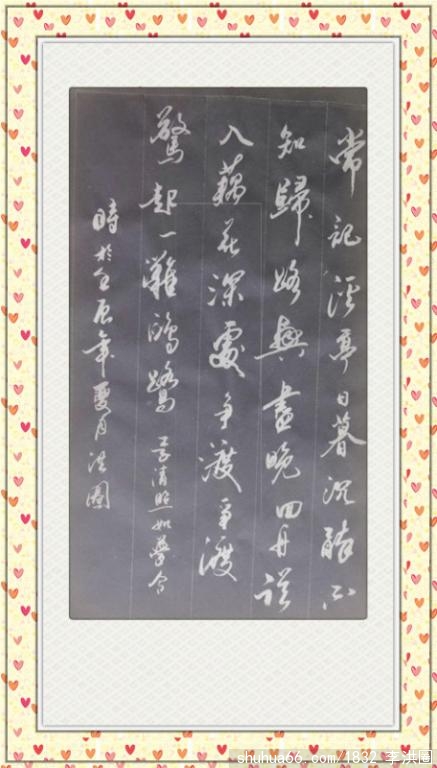 常記溪亭日暮沉醉不
知歸路興盡晚回舟誤
入藕花深處爭渡爭渡
驚起一灘鷗鷺 李清照如夢令
時於壬辰年夏月洪圖
shuhua66.com/1832 李洪图